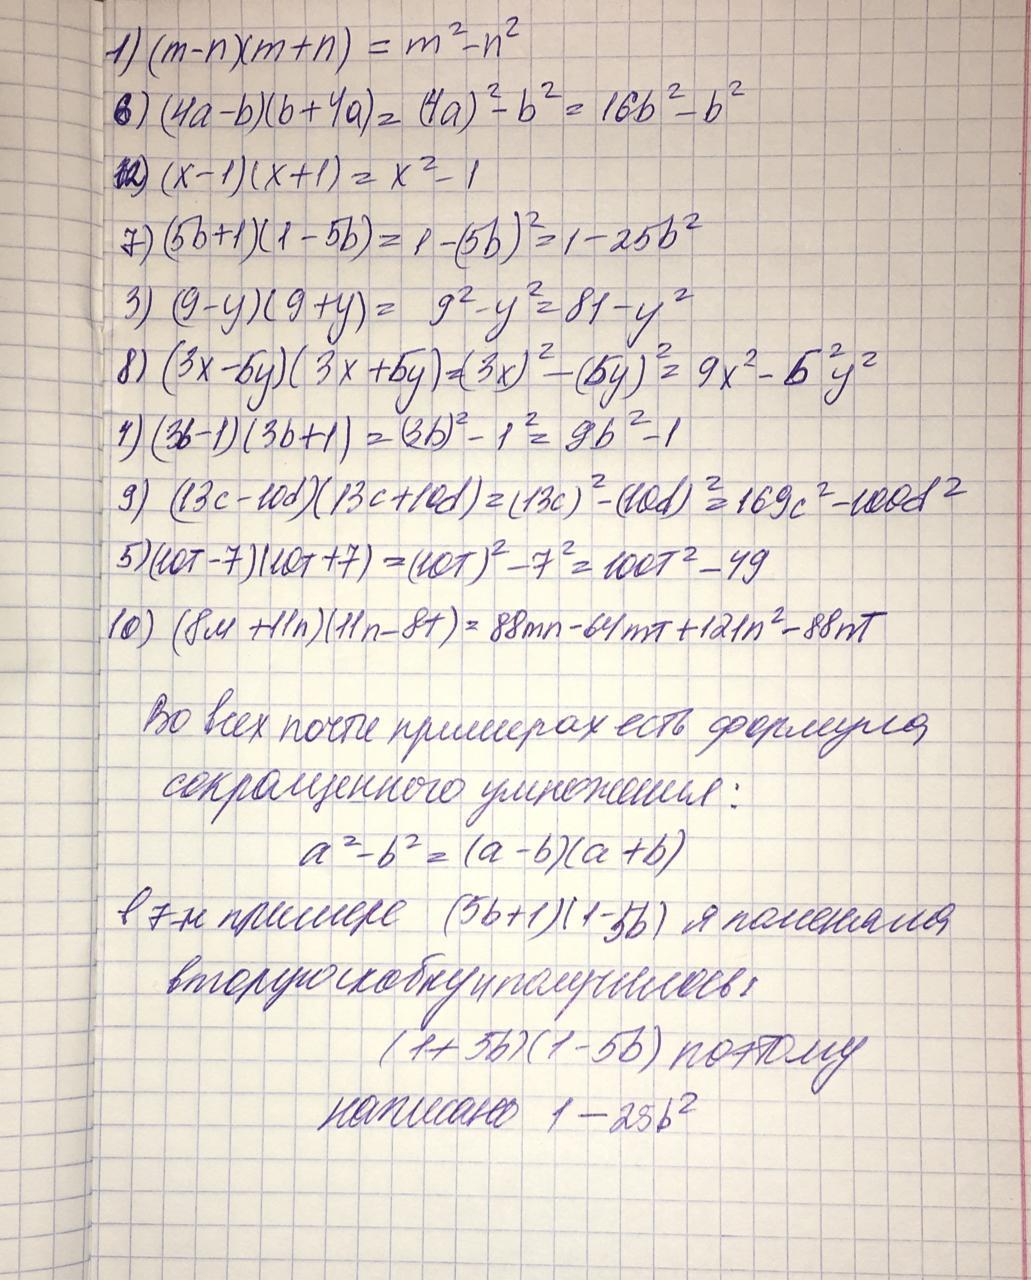 1) (m-n)(m+n) = m²-n²
6) (4a-b)(b+4a) = (4a)²-b² = 16b²-b²
2) (x-1)(x+1) = x²-1
7) (5b+1)(1-5b) = 1-(5b)² = 1-25b²
3) (9-y)(9+y) = 9²-y² = 81-y²
8) (3x-5y)(3x+5y) = (3x)²-(5y)² = 9x²-5²y²
4) (3b-1)(3b+1) = (3b)²-1² = 9b²-1
9) (13c-10d)(13c+10d) = (13c)²-(10d)² = 169c²-100d²
5) (10т-7)(10т+7) = (10т)²-7² = 100т²-49
10) (8м+11n)(11n-8т) = 88mn-64mт+121n²-88nт
Во всех почте примерах есть формула
сокращенного умножения:
a²-b² = (a-b)(a+b)
в 7-м примере (5b+1)(1-5b) я поменяла
вторую скобку и получилось:
(1+5b)(1-5b) поэтому
написано 1-25b²